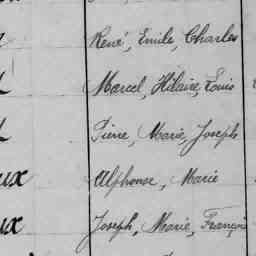 René, Emile, Charles
Marcel, Hilaire, Louis
Pierre, Marie, Joseph
ux Alphonse, Marie
ux Joseph, Marie, François